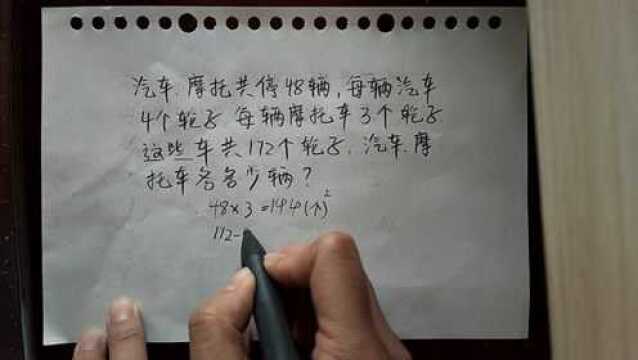 汽车、摩托共停48辆,每辆汽车
4个轮子 每辆摩托车3个轮子
这些车共172个轮子.汽车、摩
托车各多少辆?
48×3=144(个)
172-